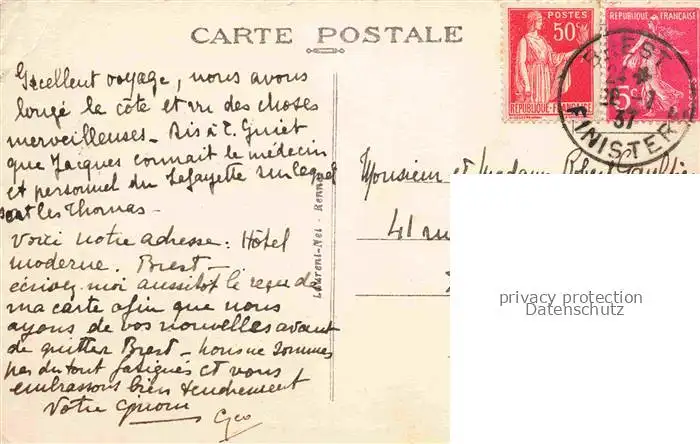 CARTE POSTALE
POSTES
50c
RÉPUBLIQUE-FRANÇAISE
RÉPUBLIQUE FRANÇAISE
5c
BREST
37
FINISTERE
Excellent voyage, nous avons
longé la côte et vu des choses
merveilleuses - Dis à T. Guiet
que Jacques connait le médecin
et personnel du Lafayette sur lequel
sont les Thomas -
Voici notre adresse : Hôtel
moderne. Brest -
écrivez moi aussitôt le reçu de
ma carte afin que nous
ayons de vos nouvelles avant
de quitter Brest - nous ne sommes
pas du tout fatigués et vous
embrassons bien tendrement
Votre
Laurent-Nel - Rennes
Monsieur et Madame Robert
41 rue
privacy protection
Datenschutz